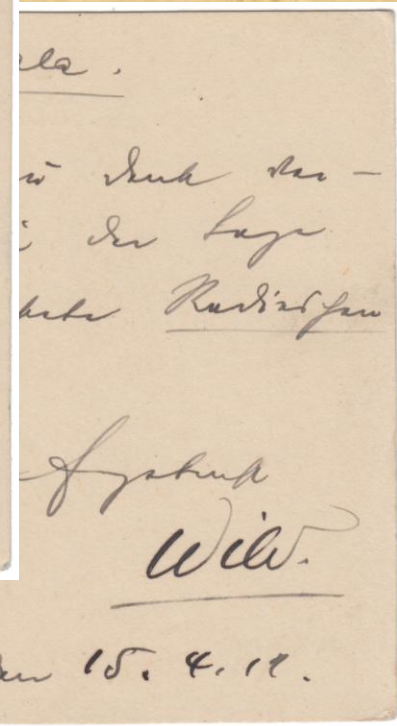 ala.
Dank ver-
der Lage
Radieschen
ergebenst
Wild.
15. 4. 12.